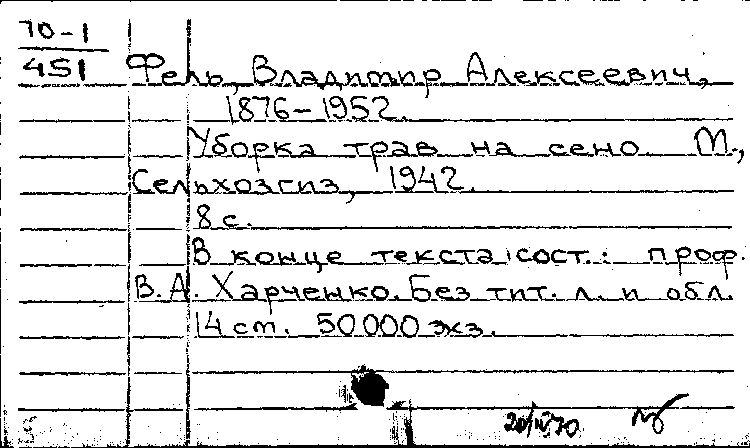 70-1
451
Фель, Владимир Алексеевич,
1876-1952.
Уборка трав на сено. М.,
Сельхозгиз, 1942.
8 с.
В конце текста сост.: проф.
В.А. Харченко. Без тит. л. и обл.
14 ст. 50000 экз.
20/IV70